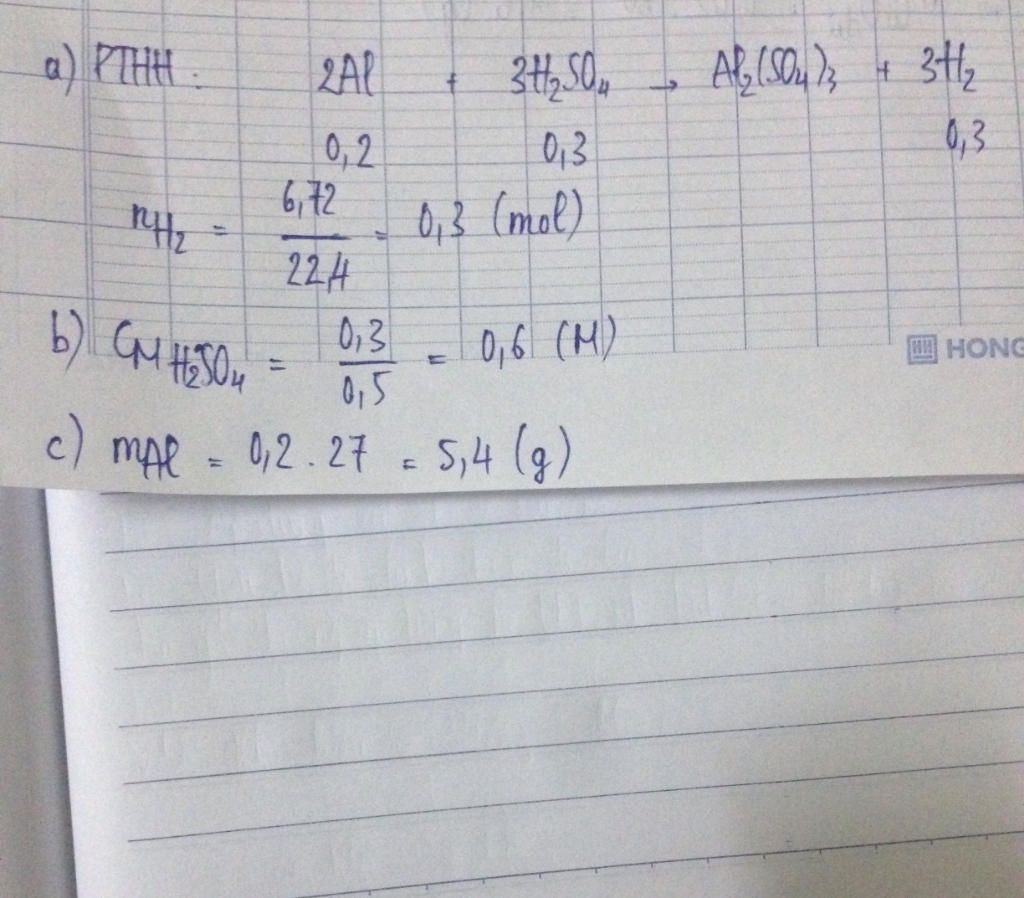 a) PTHH: 2Al + 3H₂SO₄ → Al₂(SO₄)₃ + 3H₂
0,2 0,3 0,3
nH₂ = 6,72 / 22,4 = 0,3 (mol)
b) CM H₂SO₄ = 0,3 / 0,5 = 0,6 (M)
HONG
c) mAl = 0,2 . 27 = 5,4 (g)